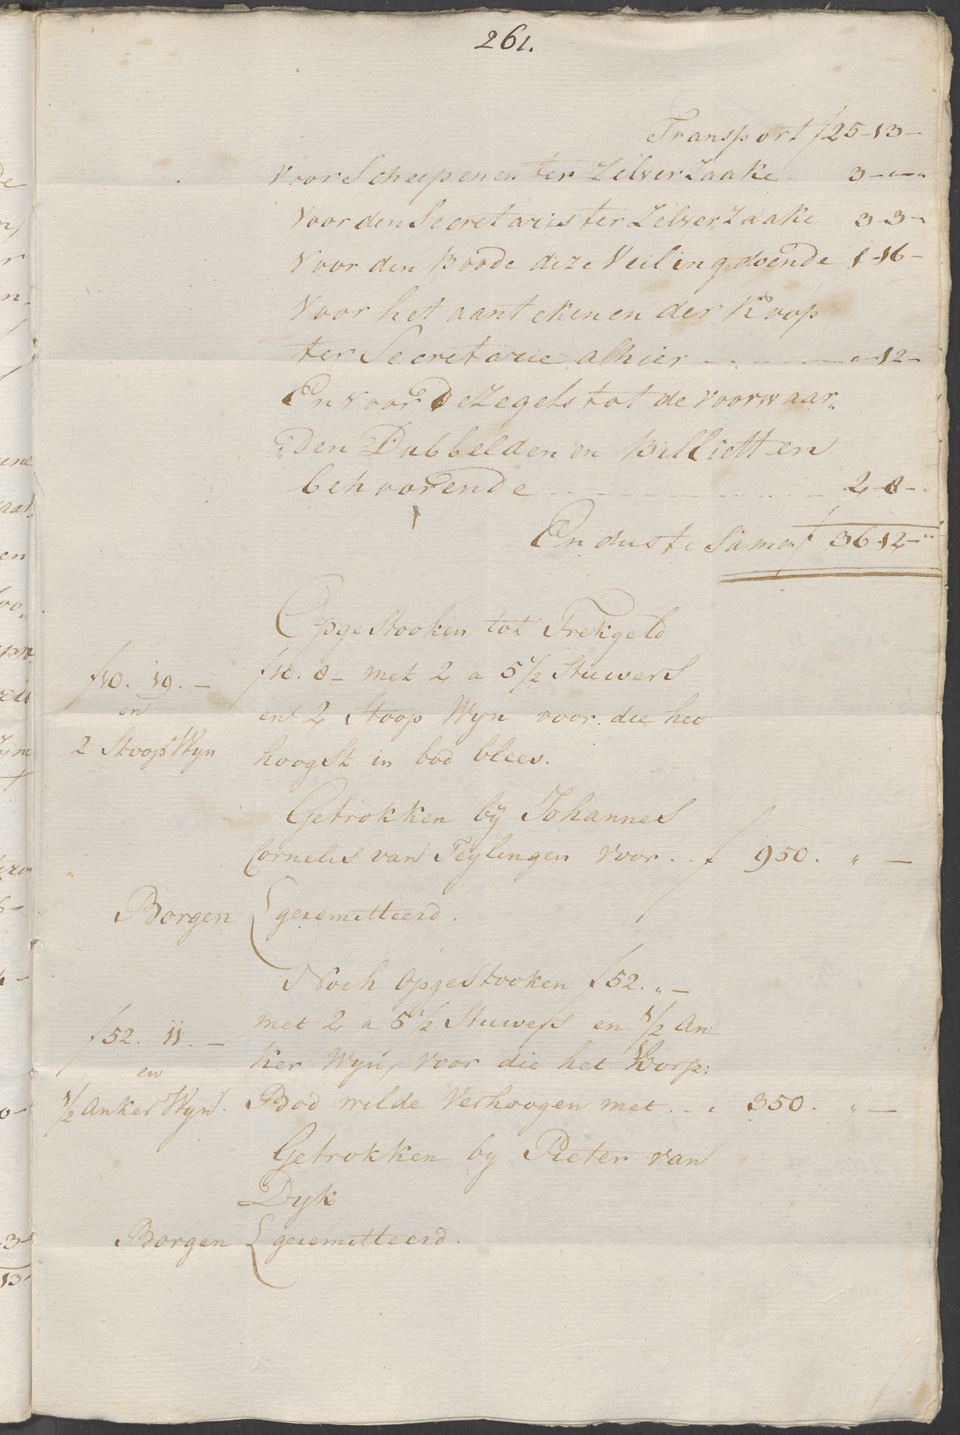 261.
Transport f25-13-
Voor Scheepenen ter Zelver Zaake 3-"-"
Voor den Secretaris ter Zelver Zaake 3-3-
Voor den Boode deze Veiling doende 1-16-
Voor het aantekenen der Koop
ter Secretarie alhier - - - "-12-
En voor de Zegels tot de voorwaar„
„den Dubbelden en Billietten
behoorende 2-8-
En dus te samen f 36-12-"
Opgestooken tot Trekgeld
f10. 8- met 2 a 5 1/2 Stuivers
en 2 Stoop Wyn voor die het
hoogst in bod bleev.
f10. 19. -
en
2 Stoop Wyn
Getrokken bÿ Johannes
Cornelis van Teylingen voor . . f 950. " -
Borgen geremitteerd.
Noch Opgestooken f52. " -
met 2 a 5 1/2 Stuivers en 1/2 An
ker Wyn, voor die het Voorsz:
Bod wilde Verhoogen met . . . 350. " -
f52. 11. -
en
1/2 Anker Wyn.
Getrokken by Pieter van
Dyk
Borgen geremitteerd.